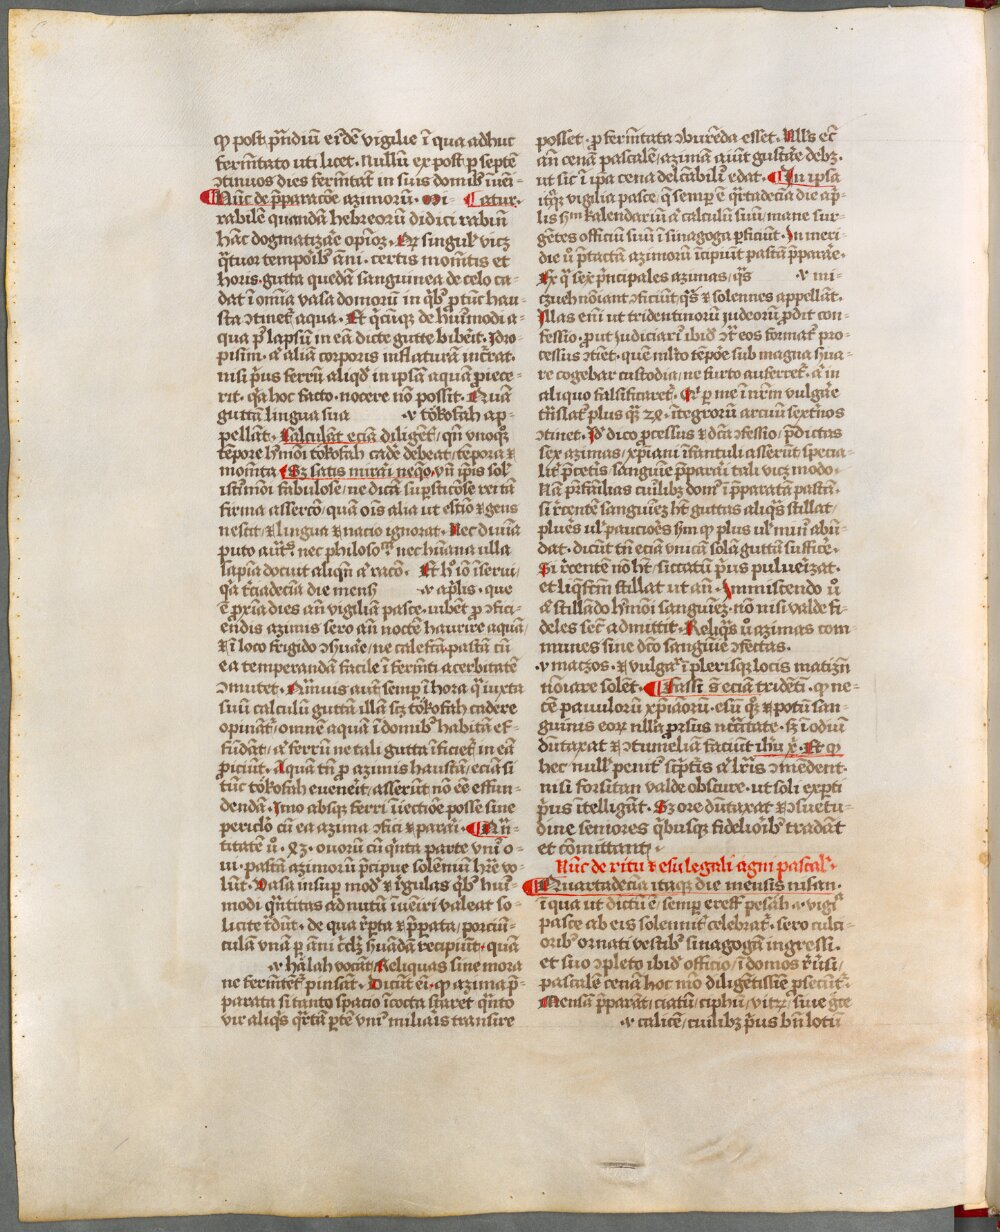 ꝙ post p̄ndiū eiꝰdē vigilie ī qua adhuc
fermētato uti licet. Nullū ex post ꝑ septē
ↄtinuos dies fermētat̄ in suis domibꝰ īuei-
Nūc de p̄paracōe azimorū. Mi- Catur.
rabilē quandā hebreorū didici rabinū
hāc dogmatizare opīoꝫ.
horis. gutta quedā sanguinea de celo ca-
dat ī omīa vasa domorū in qͥbꝰ ꝑ tūc hau-
sta ↄtinet̄ aqua. Et qͥcūqꝫ de huiꝰmodi a-
qua pꝰ lapsū in eā dicte gutte biberit. Idro-
pisim. aͭ aliā corporis inflaturā īcurrat.
nisi pͥus ferrū aliqd̄ in ipsā aquā proiece-
rit. qͥa hoc facto. nocere nō possit. Quā
guttā lingua sua .v. tōkofah ap-
pellāt. Calculāt eciā diligēt̓/ qn̄ vnoqͦꝫ
tēpore hꝰmōi tōkofah cadē debeat/ tēpora ⁊
momēta. Sꝫ satis mirari neqͦo/ vn̄ ip̄is sol̓
istiꝰmōi fabulose/ ne dicā suꝑsticōse rei tā
firma assercō/ quā oīs alia ut estīo ⁊ gens
nescit/ ⁊ lingua ⁊ nacio ignorat. Nec diuīa
puto auc̄ᵗᵃˢ nec philosoᶜᵃ nec hūana ulla
sapīa docuit aliqn̄ aͭ racō. Et hͦ iō īserui/
qͥa t̓ciadecīa die mensͥ .v. aprͥlis. que
ē ꝓxīa dies an̄ vigiliā pasce. iubēt ꝓ ↄfici-
endis azimis sero an̄ noctē haurire aquā/
⁊ ī loco frigido ↄͬhude/ ne calefcā. pastā cū
ea temperandā facile ī fermēti acerbitatē
ↄmutet. Qͣmuis autē semꝑ ī hora qͣ iuxta
suū calculū guttā illā scꝫ tōkofah cadere
opinātͬ/ omnē aquā ī domibꝰ habitā ef-
fūdāt/ aͭ ferrū ne tali gutta īficiet̄ in eā
ꝓiciūt. Aquā tn̄ ꝓ azimis haustā/ eciā si
tūc tōkofah eueneit/ asserūt nō eē effun-
dendā. Imo absqꝫ ferri īiectiōe posse sine
pericl̓o cū ea azima ↄfici ⁊ parari. Qͣn-
titatē ū̓ .xꝫ. ouorū cū qͥnta parte vniꝰ o-
ui. pastā azimorū p̄cipue solēniū hr̄e vo-
lūt. Vasa insuꝑ modͦ ⁊ r̓gulas qͥbꝰ huiꝰ-
modi qͣntitas ad nutū īueniri valeat so-
licite t̓dūt. de qua r̓ꝑta ⁊ p̄ꝑata/ porciū-
culā vnā
.v. hālah vocāt/ Reliquas sine mora
ne fermētet̄ pinsāt. Dicūt eī. ꝙ azima p̄-
parata si tanto spacio īcocta staret qͣnto
vir aliqͥs qͣrtā ꝑtē vniꝰ miliaris transire
posset. ꝓ fermētata ↄburēda esset. Nllꝰs ec̄
an̄ cenā pascalē/ azimā aiūt gustāe debꝫ.
ut sic ī ip̄a cena delc̄abiliꝰ edat. In ipsa
itqꝫ vigilia pasce/ q̄ semꝑ ē qͣrtadecīa die ap̄-
lis sᷤm kalendariū aͭ calculū suū mane sur-
gētes officiū suū ī sinagoga ꝑficiūt. In meri-
die ū̓ p̄tactā azimorū īcipiūt pastā p̄parāe.
Ex qͣ sex pͥncipales azimas/ qͣs .v. mi-
czueh noīant ↄficiūt qͣs ⁊ solennes appellāt.
Illas enī ut tridentinorū iudeorū ꝓdit con-
fessio/ ꝓut iudiciari ibid̄ ↄtͣ eos formatꝰ pro-
cessus ↄtiet. quē ml̓to tēpōe sub magna hua-
re cogebar custodia/ ne furto auferret̄. aͭ in
aliquo falsificaret̄. Qͥ ꝑ me ī nr̄m vulgāe
tn̄slatꝰ plus qͣꝫ ītegrorū arcuū sextīos
ↄtinet. Id̄ dico ꝓcessus ⁊ dc̄a ↄfessio/ p̄dictas
sex azimas/ xp̄iani īfantuli asserūt specia-
lit̓ p̄cetis sanguīe p̄parari tali vicꝫ modo.
Nā pr̄familias cuilibꝫ domꝰ ī p̄paratā pastā.
si r̓centē sanguīeꝫ hꝫ guttas aliqͣs stillat/
plures ul̓ paucioēs sᷤm ꝙ plus ul̓ minꝰ abū-
dat. dicūt tn̄ eciā vnicā solā guttā sufficē.
Si r̓centē nō hꝫ/ siccatū pͥus puluerizat.
et liqͥfcm̄ stillat ut an̄. Immiscendo ū̓
aͭ stillādo hꝰmōi sanguīeꝫ. nō nisi valde fi-
deles secū admittit. Reliqͣs ū̓ azimas com-
munes sine dc̄o sanguīe ↄfectas.
.v. matzos. ⁊ vulgaͬ ī plerisqꝫ locis matizn
nōiare solēt. Fassi sͭ eciā tridēti. ꝙ ne-
cē paruulorū xp̄iaorū. esū qͦꝫ ⁊ potū san-
guinis eorꝫ nlla prorsus nc̄citate. sꝫ ī odiū
dūtaxat ⁊ ↄtumeliā faciūt ih̄u x̄. Et ꝙ
hec nullͦ penitꝰ sc̄ptis aͭ lr̄is ↄmedent.
nisi forsitan valde obscure. ut soli experti
pͥus ītelligāt. Sꝫ ore dūtaxat ⁊ ↄsuetu-
dine seniores qͥbusqꝫ fidelioribꝰ tradāt
et cōmittant.
Nūc de ritu ⁊ esu legali agni pascal̓.
Quartadecīa itaqꝫ die mensis nisan.
ī qua ut dictū ē/ semꝑ ereff pesah .v. vigͥᵃ
pasce ab eis solennit̓ celebratͬ. sero culci-
oribꝰ ornati vestibꝰ sinagogā ingressi.
et suo ↄpleto ibid̄ officio/ ī domos r̓uͥsi/
pascalē cenā hoc mō diligētissīe ꝓsecūtͬ.
Mensā p̄parāt/ ciatū/ ciphū/ vitͬꝫ/ siue gͣte
.v. calicē/ cuilibꝫ pͥus bn̄ lotū